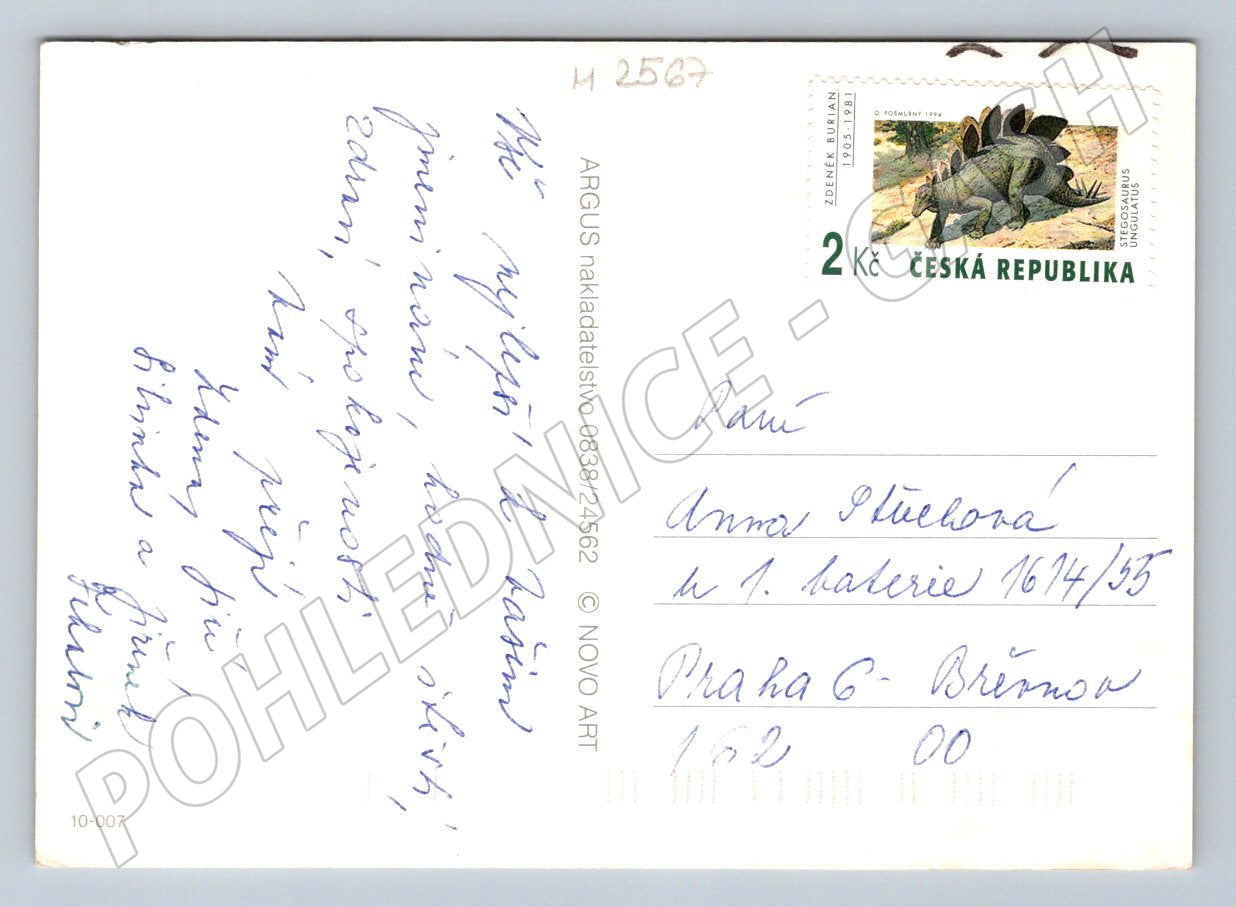 H 2567
Vše nejlepší k Vašim
jmeninám, hodně štěstí,
zdraví, spokojenosti
Vám přejí
Zdena, Jiří
Silvinka a Jiřínek
ZDENĚK BURIAN
1905-1981
O. POŠMURNÝ 1994
STEGOSAURUS
UNGULATUS
2 Kč ČESKÁ REPUBLIKA
ARGUS nakladatelstvo 0838/24562 © NOVO ART
Paní
Anna
u 1. baterie 1614/55
Praha 6 - Břevnov
162 00
10-007
POHLEDNICE - CASH